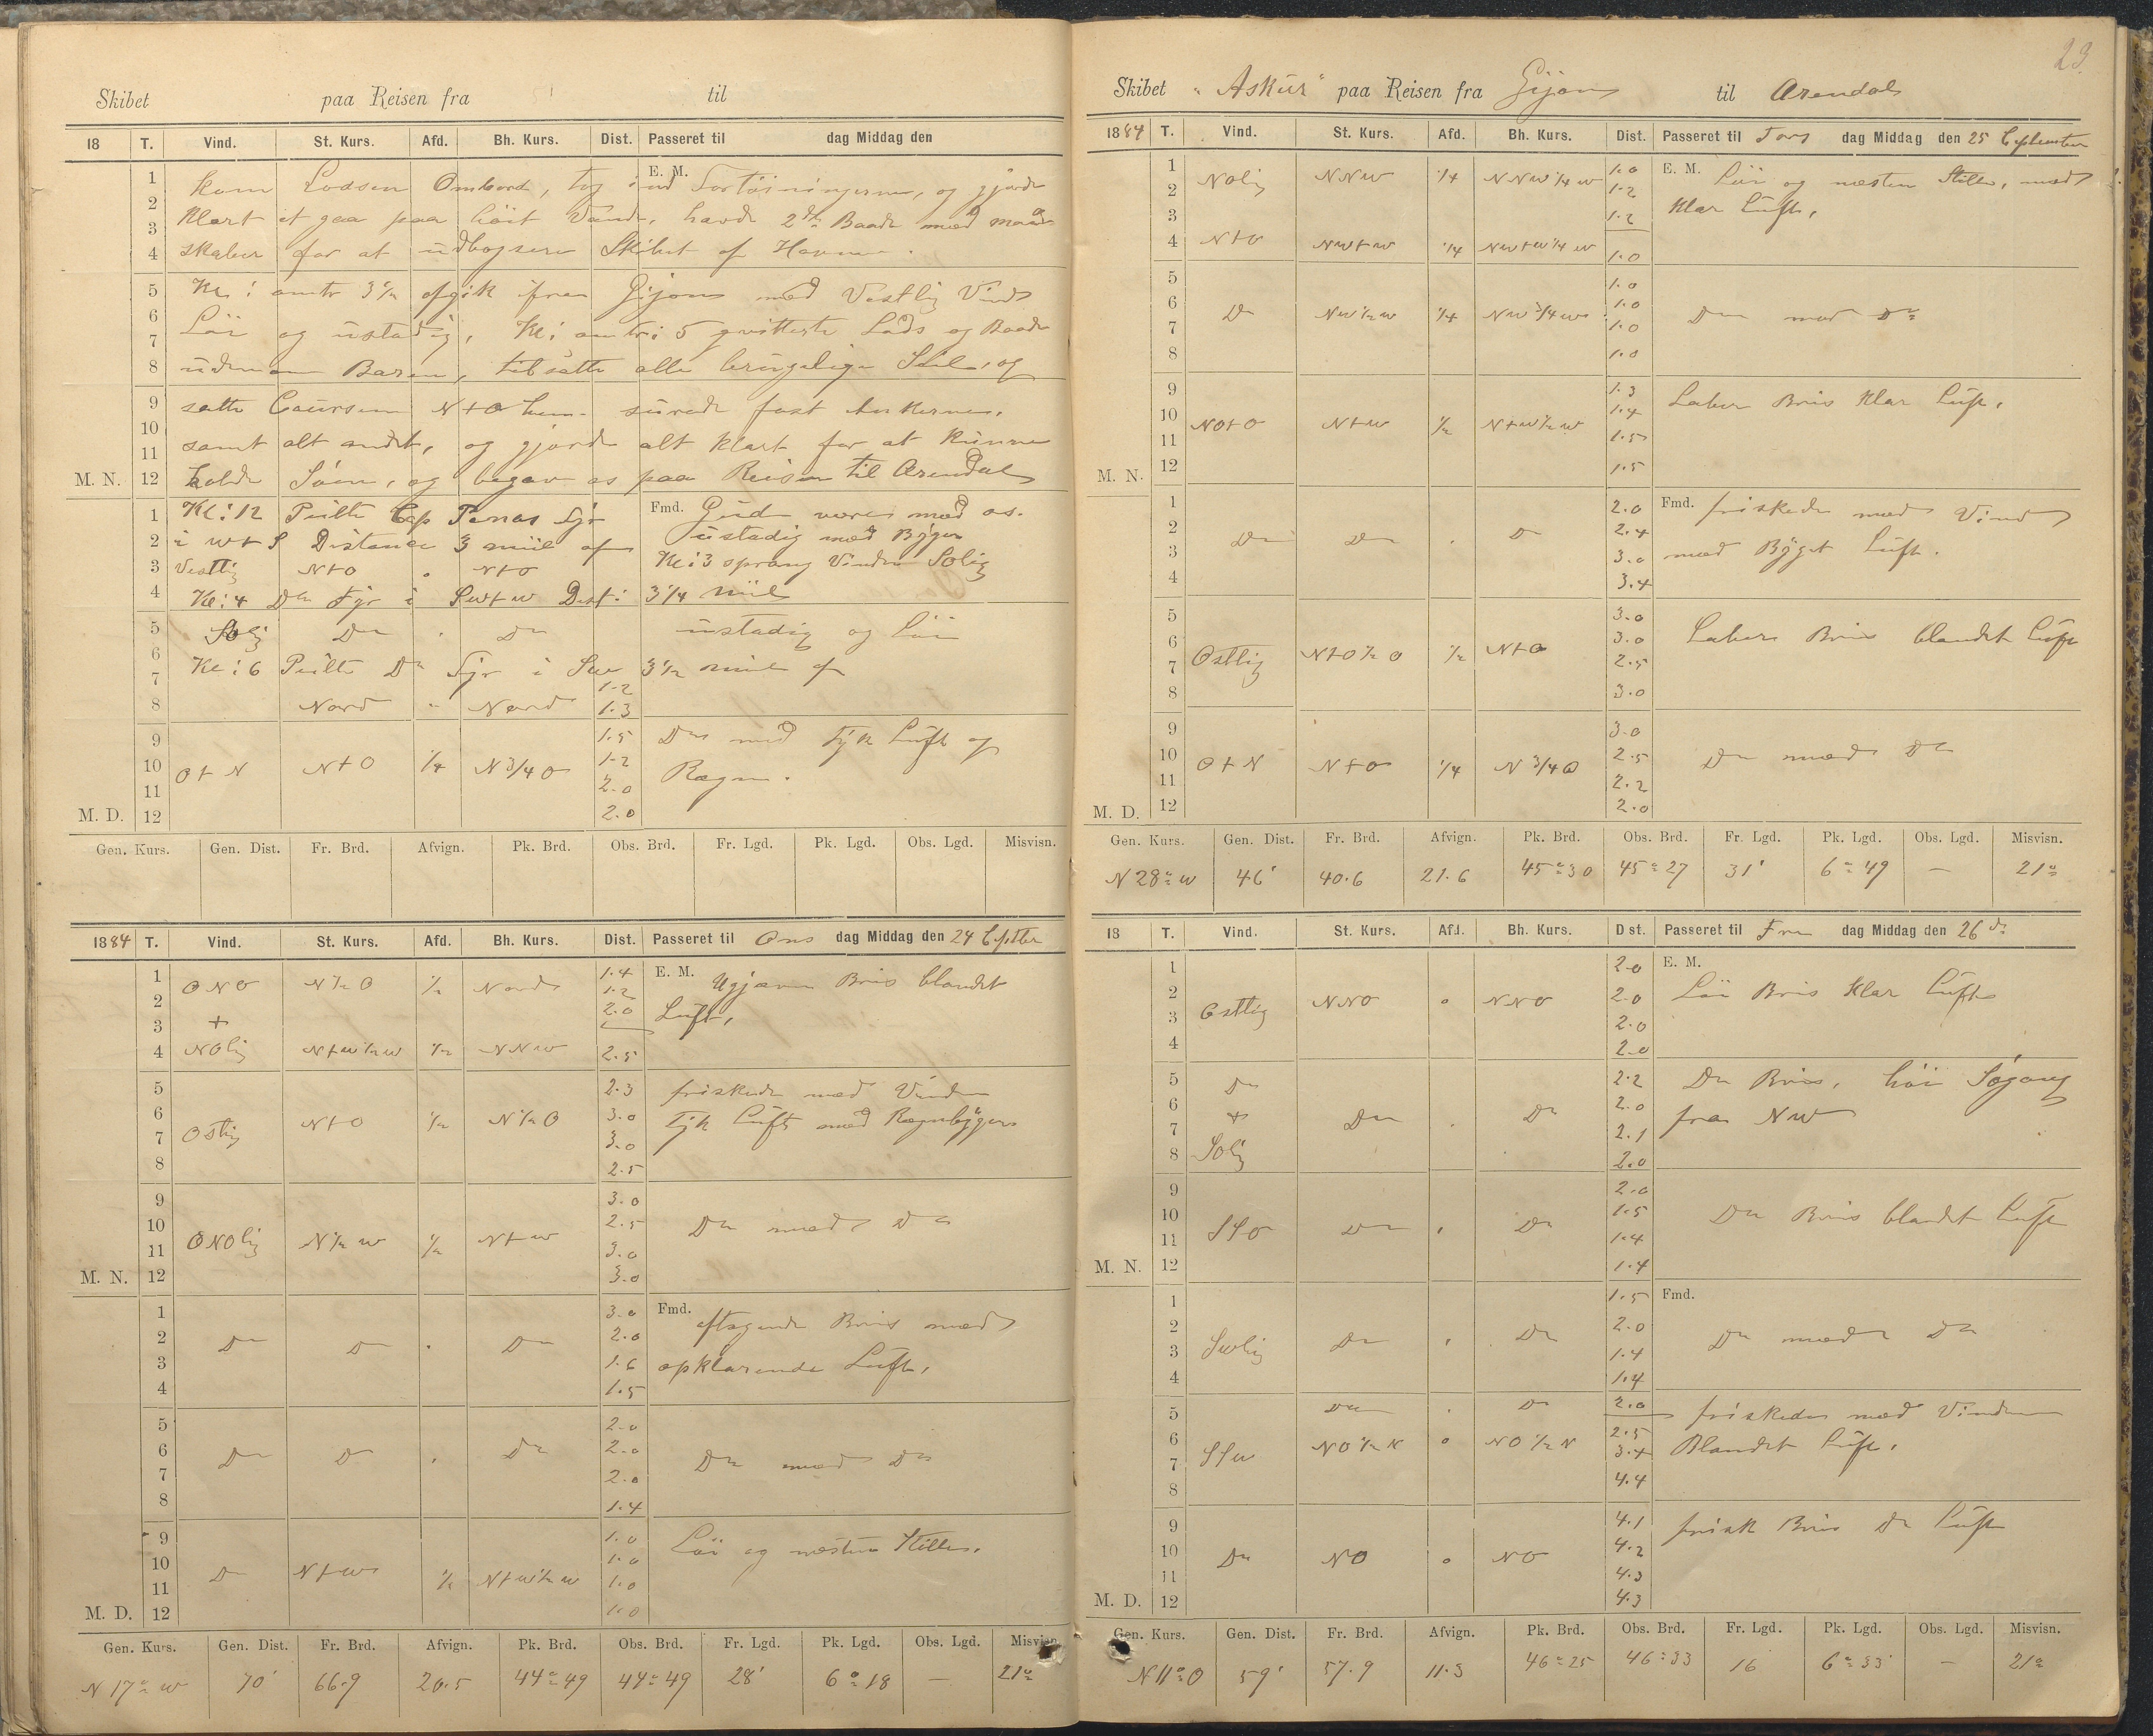 Skibet paa Reisen fra til
18 T. Vind. St. Kurs. Afd. Bh. Kurs. Dist. Passeret til dag Middag den
1 kom Lodsen Ombord, tog ind Fortöiningerne, og gjorde E. M.
2 Klart at gaa paa höit Vande, havde 2de Baade med mand
3
4 skaber for at udbogsere Skibet af Havnen.
5 Kl: omtr 3½ afgik fra Gijon med Vestlig Vind
6 Löi og ustadig, Kl: omtr: 5 qvitterte Lods og Baade
7
8 udenom Baren, tilsatte alle brugelige Seil, og
9 satte Coursen N t O hen. surede fast Ankerne,
10
11 samt alt andet, og gjorde alt Klart for at kunne
M. N. 12 holde Söen, og begav os paa Reisen til Arendal
1 Kl: 12 Peilte Cap Penas Fyr Fmd. Gud være med os.
2 i W t S Distance 3 miil af ustadig med Byger
3 Vestlig N t O " N t O Kl: 3 sprang Vinden SOlig
4 Kl: 4 Do Fyr i SW t W Dist: 3¼ miil
5 SOlig Do " Do ustadig og Löi
6 Kl: 6 Peilte Do Fyr i SW 3½ miil af
7 1.2
8 Nord " Nord 1.3
9 1.5 Do med Tyk Luft og
10 O t N N t O ¼ N ¾ O 1.2 Regn.
11 2.0
M. D. 12 2.0
Gen. Kurs. Gen. Dist. Fr. Brd. Afvign. Pk. Brd. Obs. Brd. Fr. Lgd. Pk. Lgd. Obs. Lgd. Misvisn.
1884 T. Vind. St. Kurs. Afd. Bh. Kurs. Dist. Passeret til Ons dag Middag den 24 Septber
1 ONO N ½ O ½ Nord 1.4 E. M. Ujævn Bris blandet
2 1.2
3 + 2.0 Luft,
4 NOlig N t W ½ W ½ NNW 2.5
5 2.3 friskede med Vinden
6 Ostlig N t O ½ N ½ O 3.0 Tyk Luft med Regnbyger
7 3.0
8 2.5
9 3.0
10 ONOlig N ½ W ½ N t W 2.5 Do med Do
11 3.0
M. N. 12 3.0
1 3.0 Fmd. aftagende Bris med
2 Do Do " Do 2.0
3 1.6 opklarende Luft,
4 1.5
5 2.0
6 Do Do " Do 2.0 Do med Do
7 2.0
8 1.4
9 1.0 Löi og næsten Stille,
10 Do N t W ½ N t W ½ W 1.0
11 1.0
M. D. 12 1.0
Gen. Kurs. Gen. Dist. Fr. Brd. Afvign. Pk. Brd. Obs. Brd. Fr. Lgd. Pk. Lgd. Obs. Lgd. Misvisn.
N 17° W 70' 66.9 20.5 44° 49 44° 49 28' 6° 18 — 21°
23.
Skibet "Askur" paa Reisen fra Gijon til Arendal
1884 T. Vind. St. Kurs. Afd. Bh. Kurs. Dist. Passeret til Tors dag Middag den 25 September
1 NOlig NNW ¼ NNW ¼ W 1.0 E. M. Löi og næsten Stille, med
2 1.2
3 1.2 Klar Luft,
4 N t O NW t W ¼ NW t W ¼ W 1.0
5 1.0
6 Do NW ½ W ¼ NW ¾ W 1.0 Do med Do
7 1.0
8 1.0
9 1.3 Laber Bris Klar Luft,
10 NO t O N t W ½ N t W ½ W 1.4
11 1.5
M. N. 12 1.5
1 2.0 Fmd. friskede med Vind
2 Do Do " Do 2.4
3 3.0 med Byget Luft.
4 3.4
5 3.0
6 Ostlig N t O ½ O ½ N t O 3.0 Laber Bris blandet Luft
7 2.5
8 3.0
9 3.0
10 O t N N t O ¼ N ¾ O 2.5 Do med Do
11 2.2
M. D. 12 2.0
Gen. Kurs. Gen. Dist. Fr. Brd. Afvign. Pk. Brd. Obs. Brd. Fr. Lgd. Pk. Lgd. Obs. Lgd. Misvisn.
N 28° W 46' 40.6 21.6 45° 30 45° 27 31' 6° 49 — 21°
18 T. Vind. St. Kurs. Afd. Bh. Kurs. Dist. Passeret til Fre dag Middag den 26 do
1 2.0 E. M.
2 Ostlig NNO " NNO 2.0 Löi Bris Klar Luft
3 2.0
4 2.0
5 Do 2.2 Do Bris, höi Søgang
6 + Do " Do 2.0
7 2.1 fra NW
8 SOlig 2.0
9 2.0
10 SSO Do " Do 1.5 Do Bris blandet Luft
11 1.4
M. N. 12 1.4
1 1.5 Fmd.
2 SWlig Do " Do 2.0 Do med Do
3 1.4
4 1.4
5 Do " Do 2.0 friskede med Vinden
6 SSW NO ½ N " NO ½ N 2.5 Blandet Luft,
7 3.4
8 4.4
9 4.1 frisk Bris Do Luft
10 Do NO " NO 4.2
11 4.3
M. D. 12 4.3
Gen. Kurs. Gen. Dist. Fr. Brd. Afvign. Pk. Brd. Obs. Brd. Fr. Lgd. Pk. Lgd. Obs. Lgd. Misvisn.
N 11° O 59' 57.9 11.3 46° 25 46° 33 16 6° 33' — 21°